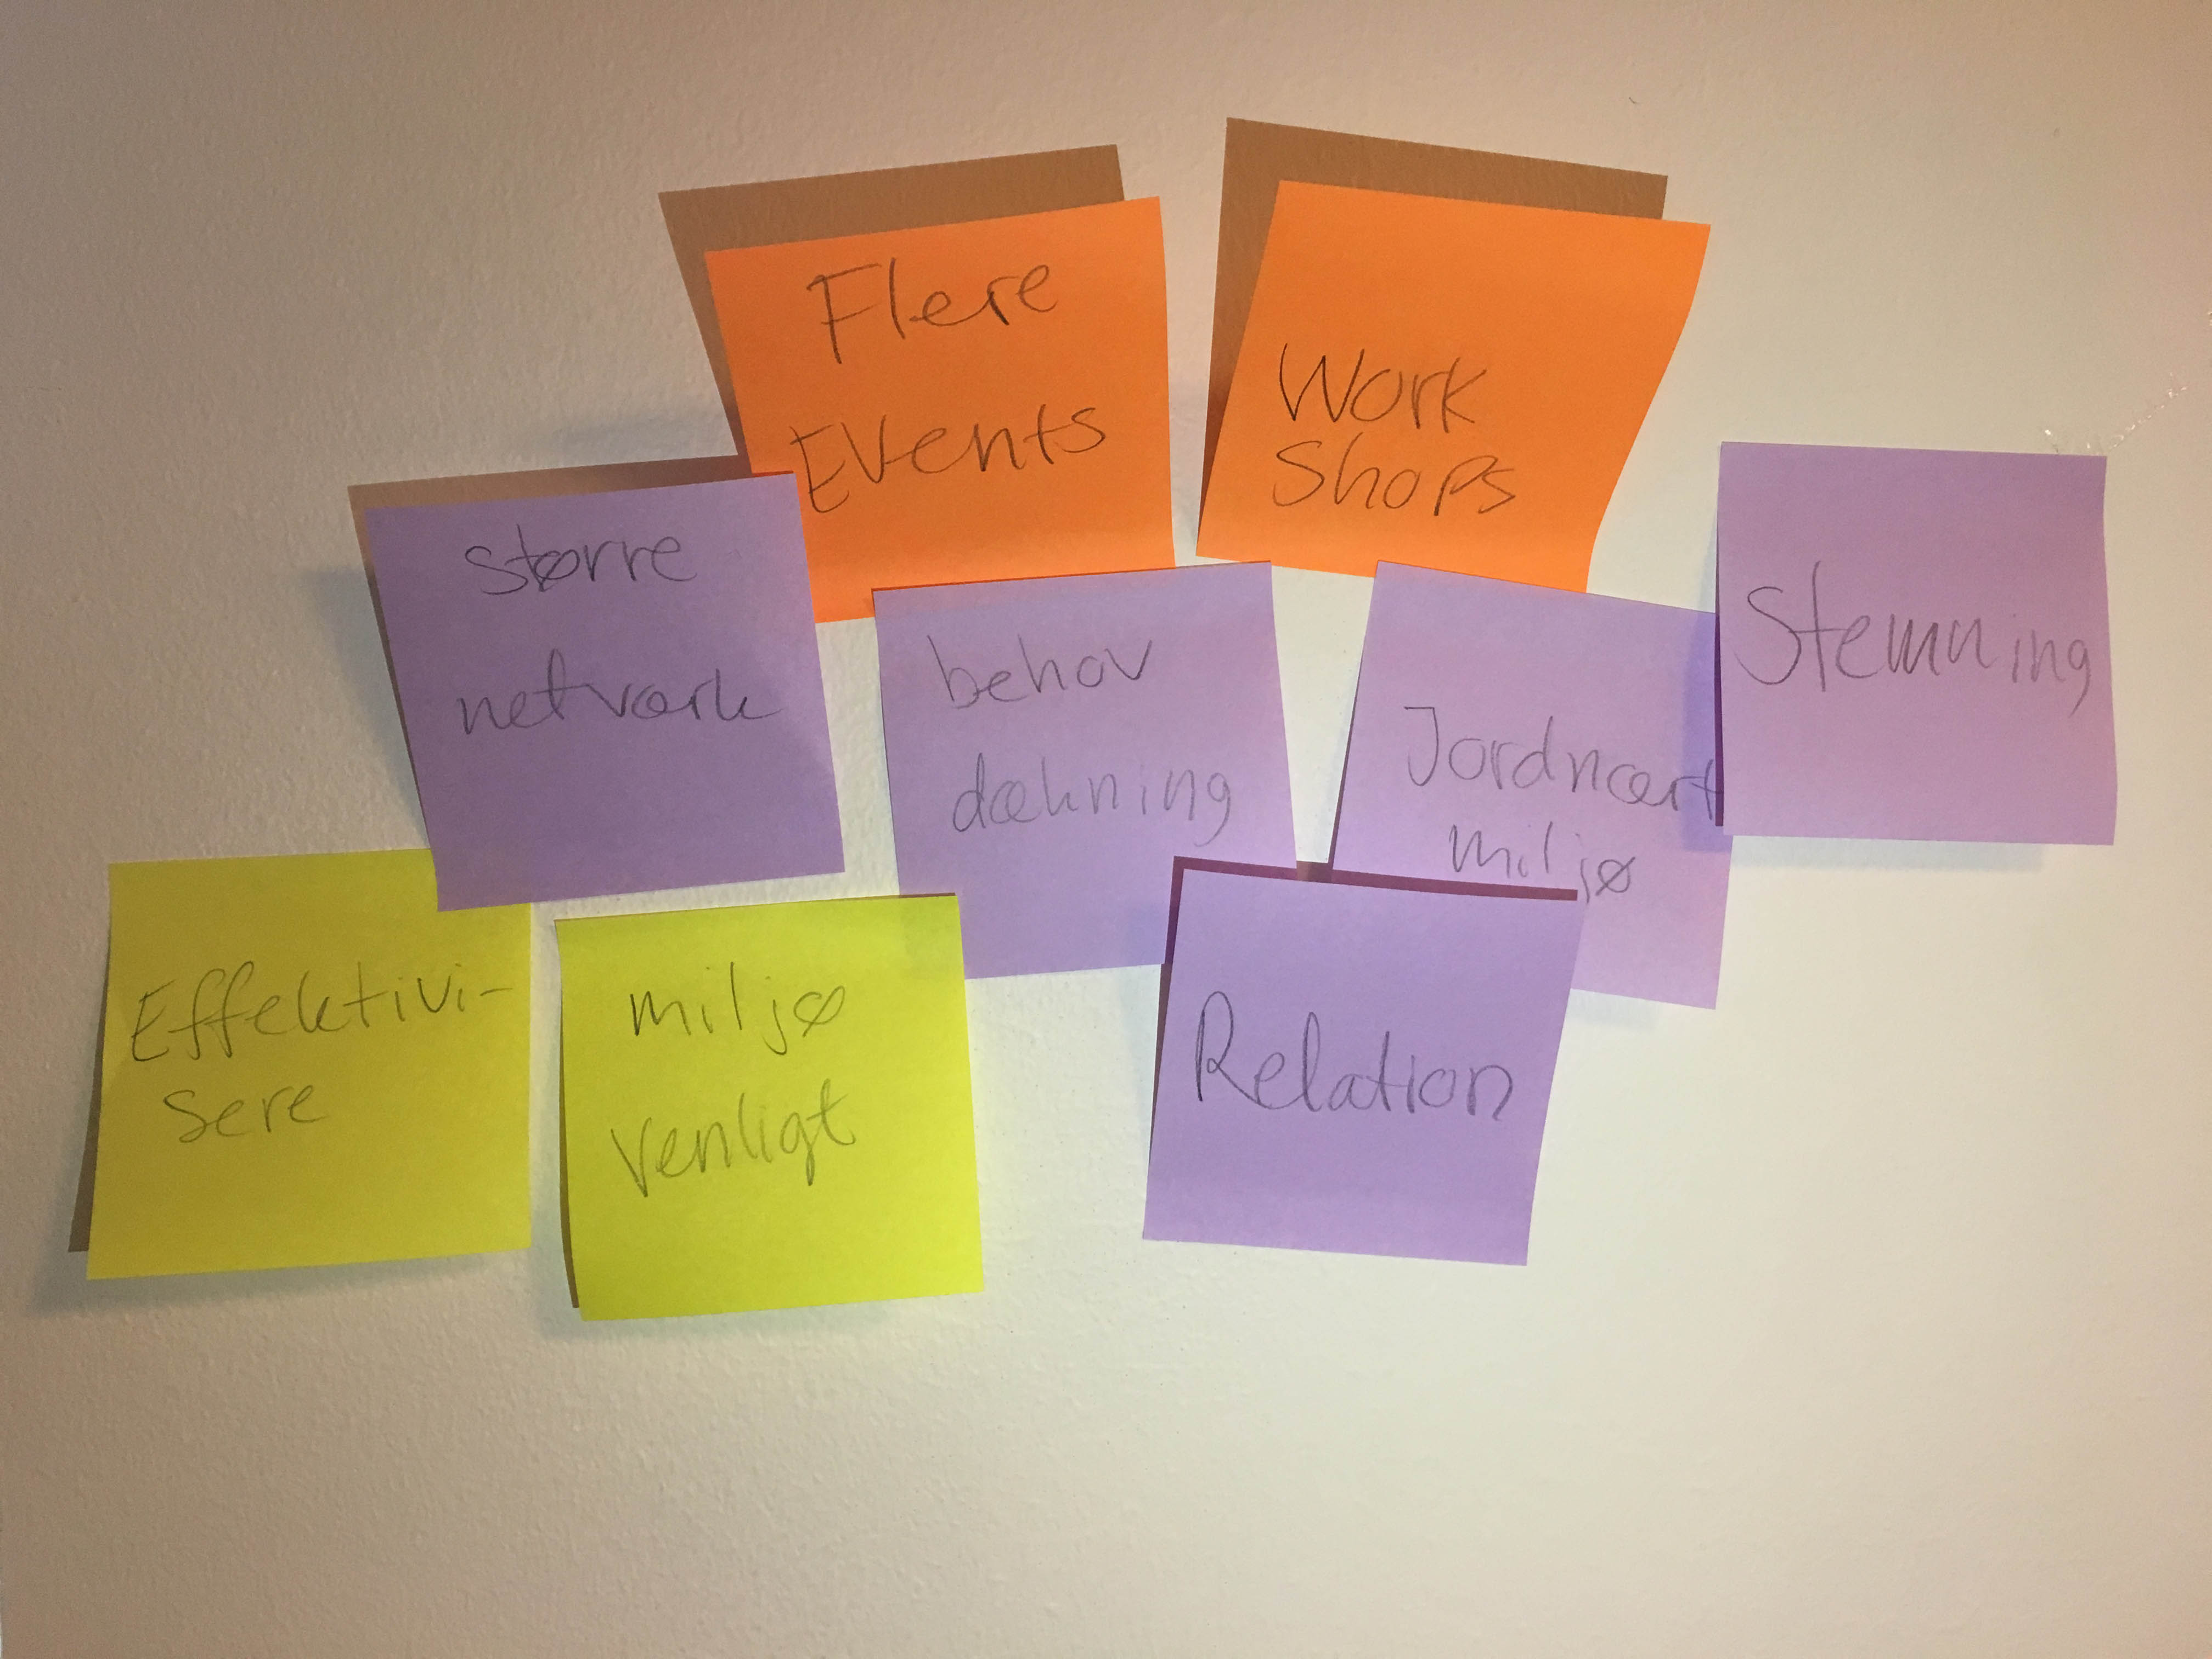 Flere
Events
Work
Shops
større
netværk
behov
dækning
Jordnært
miljø
Stemning
Effektivi-
sere
miljø
venligt
Relation